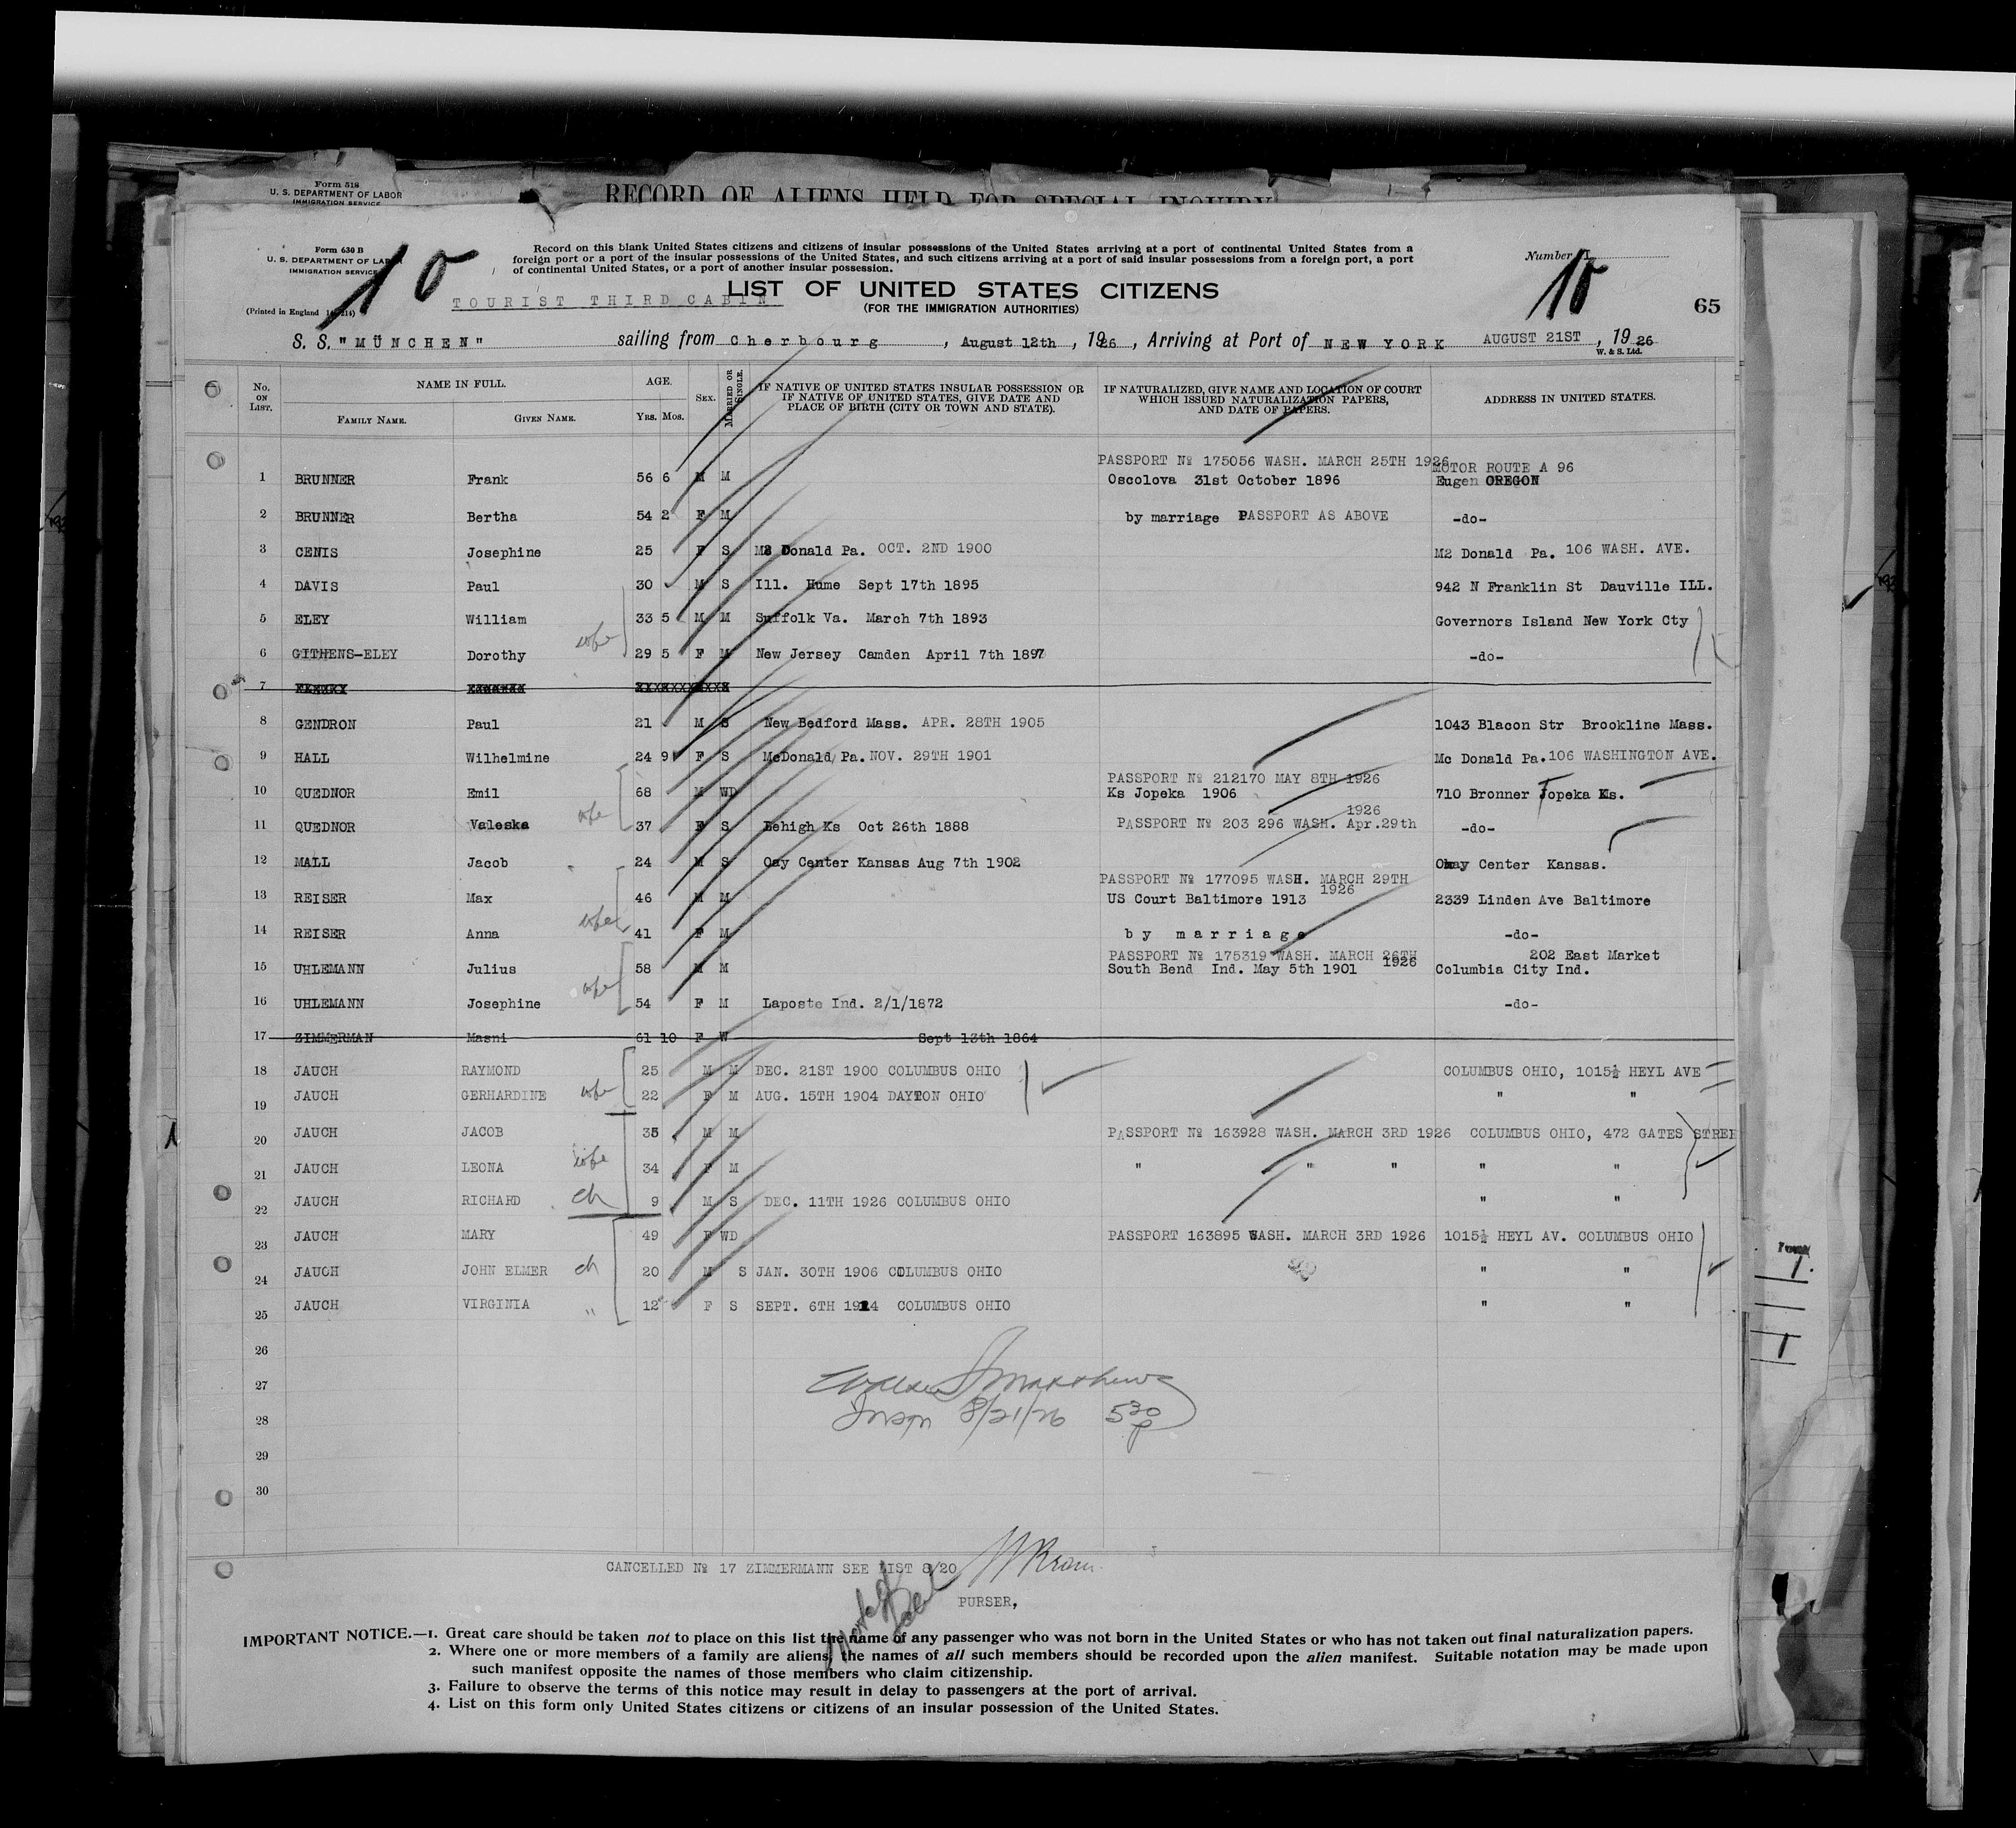 Form 518
U. S. DEPARTMENT OF LABOR
IMMIGRATION SERVICE
RECORD OF ALIENS HELD FOR SPECIAL INQUIRY
Form 630 B
U. S. DEPARTMENT OF LABOR
IMMIGRATION SERVICE
(Printed in England
10
Record on this blank United States citizens and citizens of insular possessions of the United States arriving at a port of continental United States from a
foreign port or a port of the insular possessions of the United States, and such citizens arriving at a port of said insular possessions from a foreign port, a port
of continental United States, or a port of another insular possession.
Number
10
65
TOURIST THIRD CABIN
LIST OF UNITED STATES CITIZENS
(FOR THE IMMIGRATION AUTHORITIES)
S. S. "MÜNCHEN" sailing from Cherbourg, August 12th, 1926, Arriving at Port of NEW YORK AUGUST 21ST, 1926
W. & S. Ltd.
No. ON LIST. NAME IN FULL. FAMILY NAME. GIVEN NAME. AGE. YRS. MOS. SEX. MARRIED OR SINGLE. IF NATIVE OF UNITED STATES INSULAR POSSESSION OR IF NATIVE OF UNITED STATES, GIVE DATE AND PLACE OF BIRTH (CITY OR TOWN AND STATE). IF NATURALIZED, GIVE NAME AND LOCATION OF COURT WHICH ISSUED NATURALIZATION PAPERS, AND DATE OF PAPERS. ADDRESS IN UNITED STATES.
PASSPORT № 175056 WASH. MARCH 25TH 1926 MOTOR ROUTE A 96
1 BRUNNER Frank 56 6 M M Oscolova 31st October 1896 Eugen OREGON
2 BRUNNER Bertha 54 2 F M by marriage PASSPORT AS ABOVE -do-
3 CENIS Josephine 25 F S Mc Donald Pa. OCT. 2ND 1900 M2 Donald Pa. 106 WASH. AVE.
4 DAVIS Paul 30 M S Ill. Hume Sept 17th 1895 942 N Franklin St Dauville ILL.
5 ELEY William 33 5 M M Suffolk Va. March 7th 1893 Governors Island New York Cty
6 GITHENS-ELEY Dorothy wife 29 5 F M New Jersey Camden April 7th 1897 -do-
7
8 GENDRON Paul 21 M S New Bedford Mass. APR. 28TH 1905 1043 Blacon Str Brookline Mass.
9 HALL Wilhelmine 24 9 F S McDonald Pa. NOV. 29TH 1901 Mc Donald Pa. 106 WASHINGTON AVE.
PASSPORT № 212170 MAY 8TH 1926
10 QUEDNOR Emil 68 M WD Ks Jopeka 1906 710 Bronner Topeka Ks.
1926
11 QUEDNOR Valeska wife 37 F S Lehigh Ks Oct 26th 1888 PASSPORT № 203 296 WASH. Apr.29th -do-
12 MALL Jacob 24 M S Cay Center Kansas Aug 7th 1902 Okay Center Kansas.
PASSPORT № 177095 WASH. MARCH 29TH
1926
13 REISER Max 46 M M US Court Baltimore 1913 2339 Linden Ave Baltimore
14 REISER Anna wife 41 F M by marriage -do-
PASSPORT № 175319 WASH. MARCH 26TH 1926 202 East Market
15 UHLEMANN Julius 58 M M South Bend Ind. May 5th 1901 Columbia City Ind.
16 UHLEMANN Josephine wife 54 F M Laposte Ind. 2/1/1872 -do-
17 ZIMMERMAN Masni 61 10 F W Sept 13th 1864
18 JAUCH RAYMOND 25 M M DEC. 21ST 1900 COLUMBUS OHIO COLUMBUS OHIO, 1015½ HEYL AVE
19 JAUCH GERHARDINE wife 22 F M AUG. 15TH 1904 DAYTON OHIO " "
20 JAUCH JACOB 35 M M PASSPORT № 163928 WASH. MARCH 3RD 1926 COLUMBUS OHIO, 472 GATES STREE
21 JAUCH LEONA wife 34 F M " " " " "
22 JAUCH RICHARD ch 9 M S DEC. 11TH 1926 COLUMBUS OHIO " "
23 JAUCH MARY 49 F WD PASSPORT 163895 WASH. MARCH 3RD 1926 1015½ HEYL AV. COLUMBUS OHIO
24 JAUCH JOHN ELMER ch 20 M S JAN. 30TH 1906 COLUMBUS OHIO " "
25 JAUCH VIRGINIA " 12 F S SEPT. 6TH 1914 COLUMBUS OHIO " "
26
27
28
29
30
Matthews
Insp 8/21/26 5 30 p
CANCELLED № 17 ZIMMERMANN SEE LIST 8/20
PURSER,
IMPORTANT NOTICE.—1. Great care should be taken not to place on this list the name of any passenger who was not born in the United States or who has not taken out final naturalization papers.
2. Where one or more members of a family are aliens, the names of all such members should be recorded upon the alien manifest. Suitable notation may be made upon
such manifest opposite the names of those members who claim citizenship.
3. Failure to observe the terms of this notice may result in delay to passengers at the port of arrival.
4. List on this form only United States citizens or citizens of an insular possession of the United States.